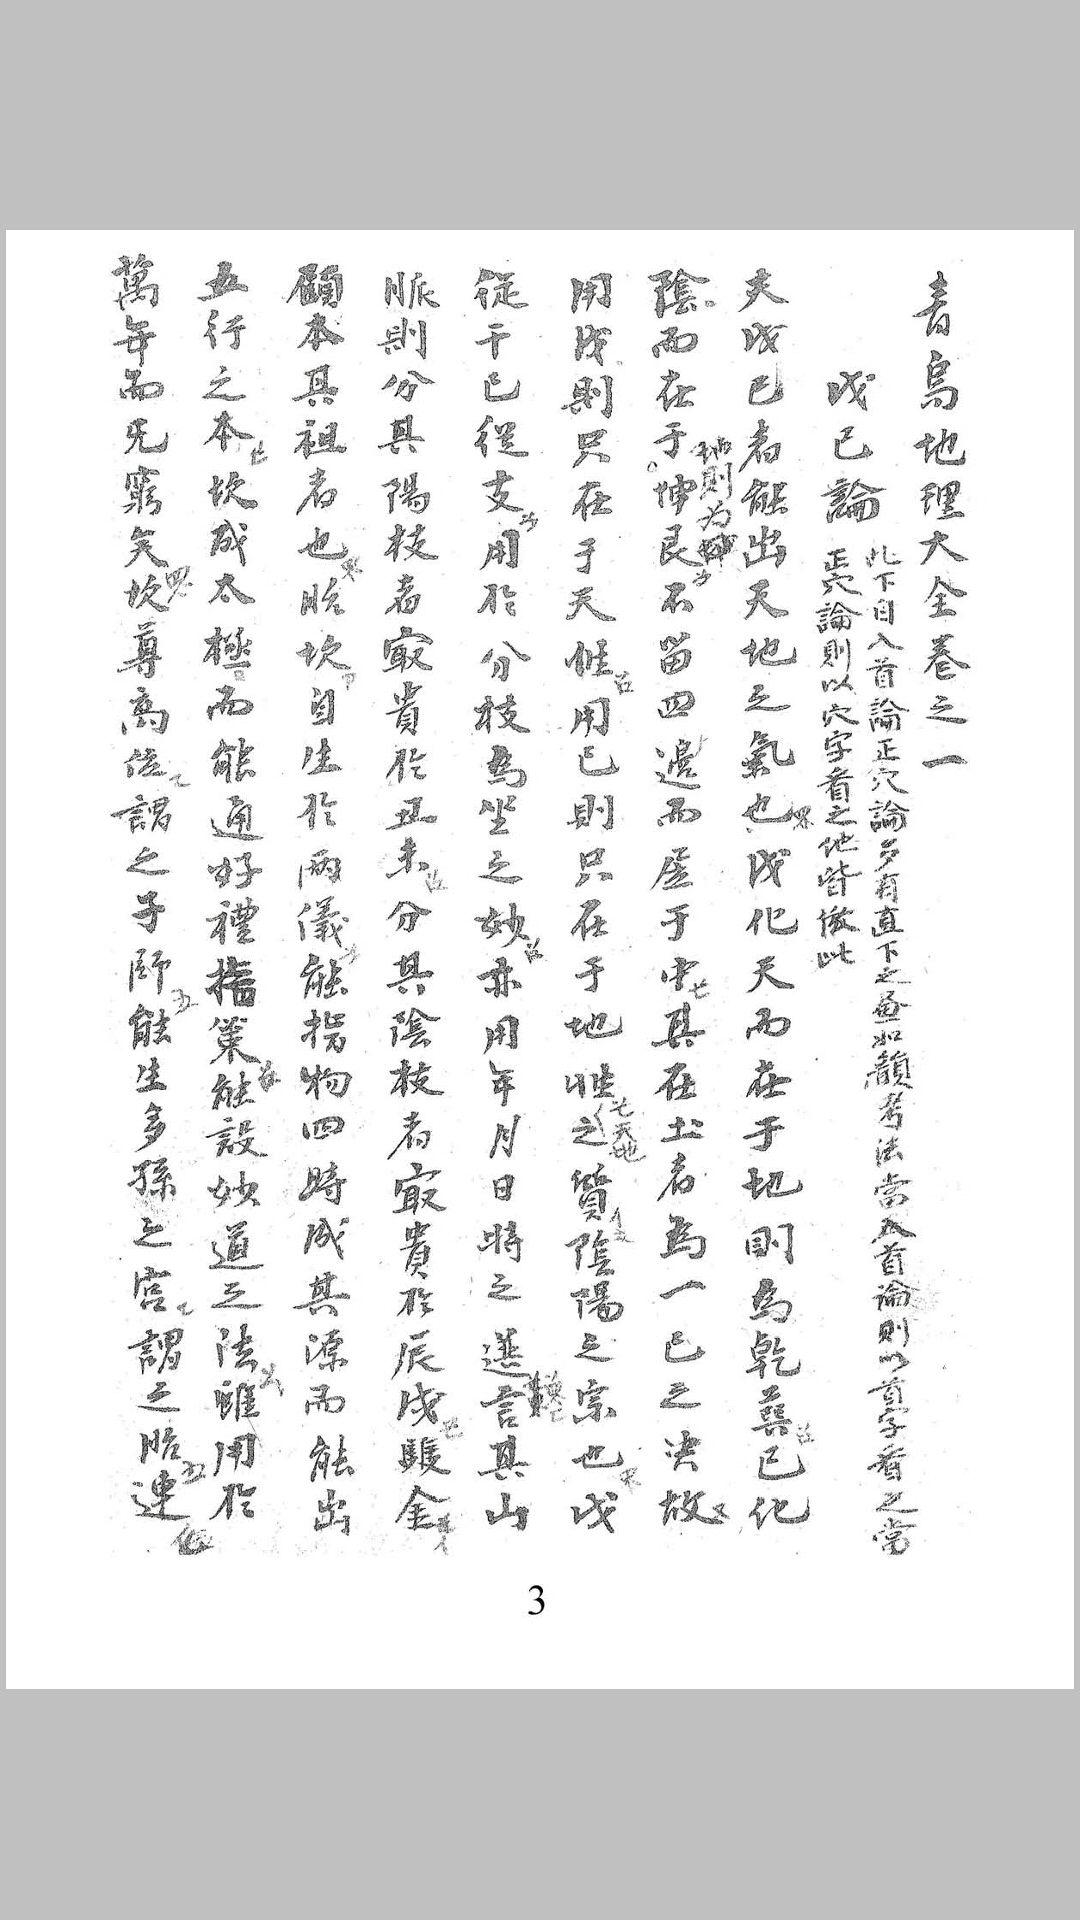 青烏地理大全卷之一
戊己論
此下自入首論正穴論多有直下之 如韻考法當入首論則以首字看之當
正穴論則以穴字看之他皆倣此
夫戊己者能出天地之氣也戊化天而在于地則為乾巽己化
陰而在于坤艮不留四邊而居于中其在土者為一己之决故
地則为
用戊則只在于天性用己則只在于地性之質陰陽之宗也戊
天地
從干己從支用於分枝為坐之妙亦用年月日時之 言其山
脈則分其陽枝者㝡貴於丑未分其陰枝者㝡貴於辰戌雖金
顧本其祖者也 坎自生於兩儀能 物四時成其源而能出
五行之本坎成太極而能通好禮 策能設妙道之法雖用於
萬年而无窮矣坎尊高位謂之子師能生多孫之宮謂之胎連
3